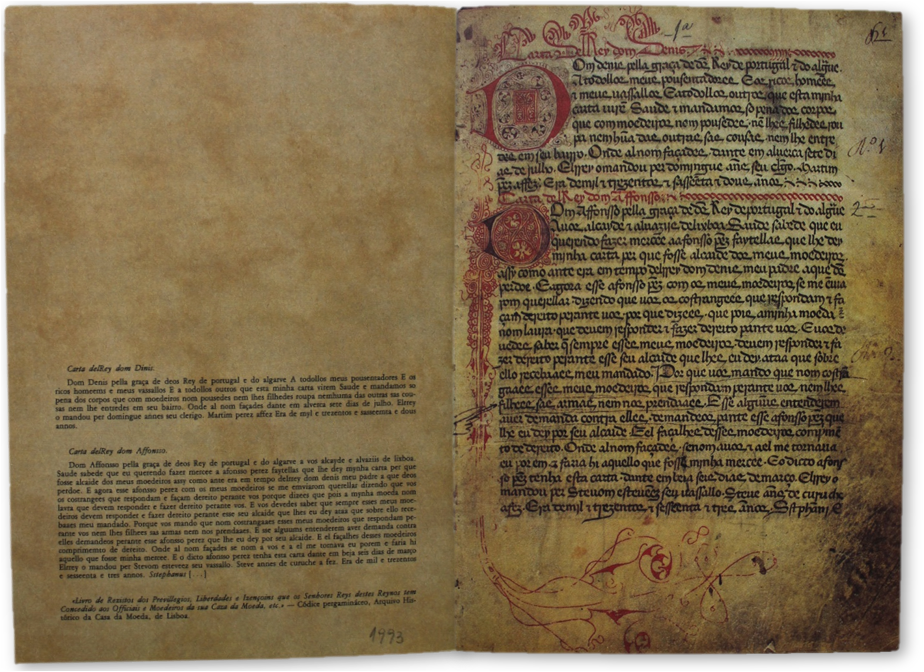 Carta delRey dom Dinis.
Dom Denis pella graça de deos Rey de portugal e do algarve A todollos meus pousentadores E os
ricos homeens e meus vassallos E a todollos outros que esta minha carta virem Saude e mandamos so
pena dos corpos que com moedeiros nom pousedes nem lhes filhedes roupa nenhuma das outras sas cou-
sas nem lhe entredes em seu bairro. Onde al nom façades dante em alvexra sete dias de julho. Elrrey
o mandou per domingue annes seu clerigo. Martim perez affez Era de myl e trezentos e sassenta e dous
annos.
Carta delRey dom Affonsso.
Dom Affonsso pella graça de deos Rey de portugal e do algarve a vos alcayde e alvariis de lisboa.
Saude sabede que eu querendo fazer mercee a afonso perez faytellas que lhe dey mynha carta per que
fosse alcaide dos meus moedeiros assy como ante era em tempo delrrey dom denis meu padre a que deos
perdoe. E agora esse afonso perez com os meus moedeiros se me enviarom querellar dizendo que vos
os costrangees que respondam e façam dereito perante vos porque dizees que pois a mynha moeda nom
lavra que devem responder e fazer dereito perante vos. E vos devedes saber que sempre esses meus moe-
deiros devem responder e fazer dereito perante esse seu alcaide que lhes eu dey atas que sobre ello rece-
baaes meu mandado. Porque vos mando que nom costrangaaes esses meus moedeiros que respondam pe-
rante vos nem lhes filhees sas armas nem nos prendaaes. E se alguuns entenderem aver demanda contra
elles demandem perante esse afonso perez que lhe eu dey por seu alcaide. E el façalhes desses moedeiros
comprimento de dereito. Onde al nom façades se nom a vos e a el me tornava eu porem e faria hi
aquello que fosse minha mercee. E o dicto afonso perez tenha esta carta dante em beja seis dias de março
Elrrey o mandou per Stevom estevez seu vassallo. Steve annes de curuche a fez. Era de mil e trezentos
e sessenta e tres annos. Sstephanus [...]
«Livro de Rexistos dos Previllegios, Liberdades e Izençoins que os Senhores Reys destes Reynos tem
Comsedido aos Officiais e Moedeiros da sua Caza da Moeda, etc.» — Códice pergamináceo, Arquivo His-
tórico da Casa da Moeda, de Lisboa
1993
1ª
Carta delRey dom Denis.
Om denis pella graça de ds Rey de portugal e do algue
A todollos meus pousentadores E os ricos homees
e meus vassallos E a todollos outros que esta minha
carta virē Saude e mandamos so pena dos corpos
que com moedeiros nom pousedes nē lhes filhedes rou
pa nenhũa das outras sas cousas nem lhe entre
des em seu bairro. Onde al nom façades dante em alvexra sete di
as de julho. Elrrey o mandou per domingue anēs seu clīgo. Martim
perz affez. Era de mil e trezentos e sassēta e dous anos
Carta delRey dom Affonsso
Om Affonsso pella graça de ds Rey de portugal e do algue
A vos alcaide e alvariis de lixboa Saude sabede que eu
querendo fazer mercee a afonso perz faytellas que lhe dey
minha carta per que fosse alcaide dos meus moedeiros
assy como ante era em tempo delrrey dom denis meu padre a que ds
perdoe. E agora esse afonso perz com os meus moedeiros se me ēvia
rom querellar dizendo que vos os costrangees que respondam e fa
çam dereito perante vos por que dizees que pois a minha moeda
nom lavra que devem responder e fazer dereito pante vos. E vos de
vedes saber q̄ sempre esses meus moedeiros devem responder e fa
zer dereito perante esse seu alcaide que lhes eu dey ataa que sobre
ello recebaaes meu mandado. Por que vos mando que nom costrā
gaaes esses meus moedeiros que respondam perante vos nem lhes
filhees sas armas nem nos prendaaes. E se alguūs entenderem
aver demanda contra elles demandem perante esse afonso perz que
lhe eu dey por seu alcaide E el façalhes desses moedeiros comprimē
to de dereito. Onde al nom façades senom a vos e a el me tornaria
eu por em e faria hi aquello que fosse minha mercee. E o dicto afonso
perz tenha esta carta dante em beja seis dias de março Elrrey o
mandou per Stevom estevez seu vassallo. Steve anēs de curuche
a fez. Era de mil e trezentos e sessenta e tres anos. Sstephā9
Nº 1
2ª